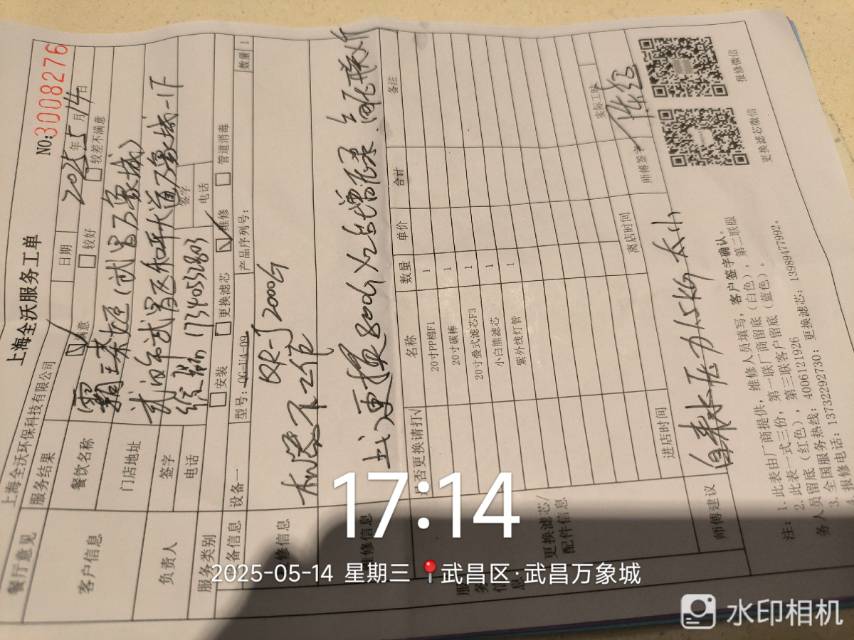 上海全沃服务工单
NO:3008276
上海全沃环保科技有限公司
日期 2025年5月14日
餐厅意见
服务结果
满意
较好
较差不满意
客户信息
餐饮名称
霸王茶姬(武昌万象城)
门店地址
武汉市武昌区和平大道万象城-1F
负责人
签字
签字
电话
电话
服务类别
安装
更换滤芯
维修
管道消毒
设备信息
设备一
型号:QG-U4-09
QR-J200G
产品序列号:
数量 1
维修信息
机器不工作
上门更换800G
是否更换请打√
名称
数量
单价
合计
备注
更换滤芯/
配件信息
20寸PP棉F1
1
20寸碳棒
1
20寸叠式滤芯F3
1
小白熊滤芯
1
紫外线灯管
1
进店时间
离店时间
实际工时
师傅建议
自来水压力1.5KG太小
师傅签字
注:1.此表由厂商提供,维修人员填写,客户签字确认。
2.此表一式三份,第一联厂商留底(白色),第二联服
务人员留底(红色),第三联客户留底(蓝色)。
3.全国服务热线:4006121926
4.报修电话:13732292730;更换滤芯:13989477992。
更换滤芯微信
报修微信
17:14
2025-05-14 星期三 武昌区·武昌万象城
水印相机